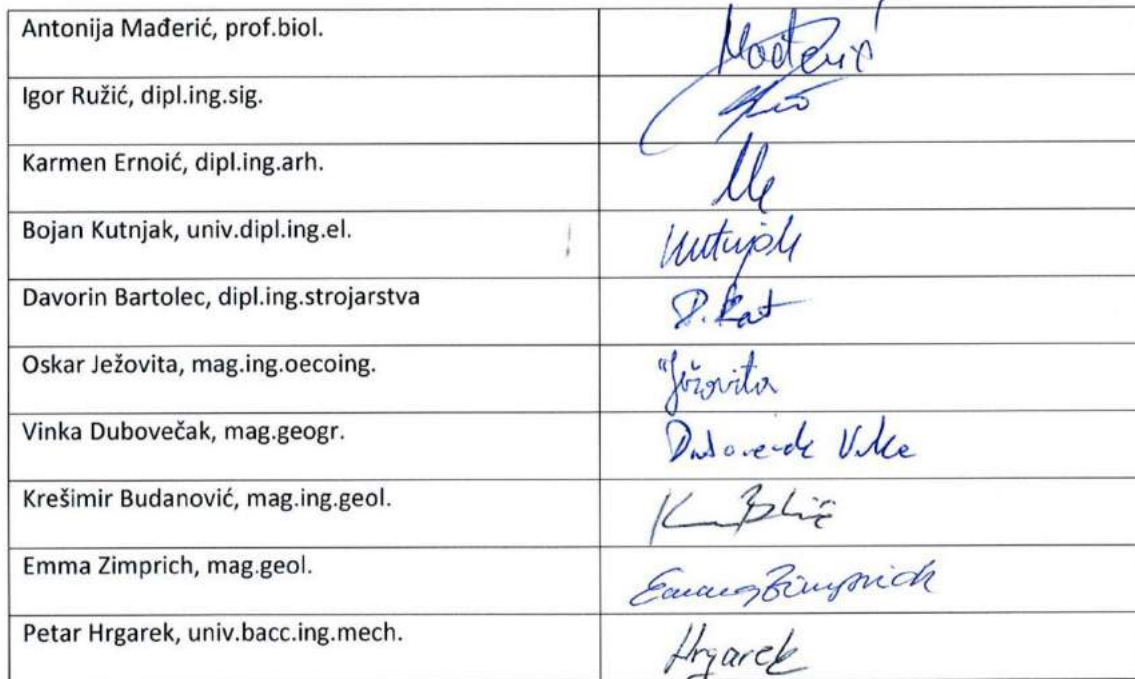 Antonija Mađerić, prof.biol. Mađerić
Igor Ružić, dipl.ing.sig.
Karmen Ernoić, dipl.ing.arh.
Bojan Kutnjak, univ.dipl.ing.el. Kutnjak
Davorin Bartolec, dipl.ing.strojarstva
Oskar Ježovita, mag.ing.oecoing. Ježovita
Vinka Dubovečak, mag.geogr.
Krešimir Budanović, mag.ing.geol.
Emma Zimprich, mag.geol. Emma Zimprich
Petar Hrgarek, univ.bacc.ing.mech. Hrgarek